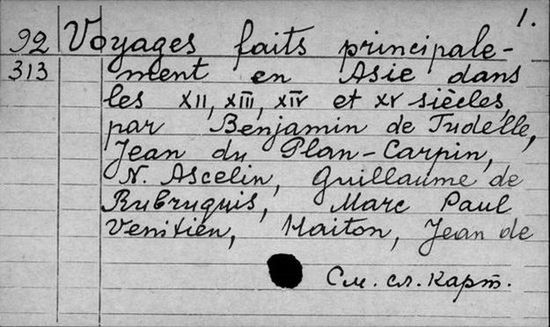 1.
92 Voyages faits principale-
313 ment en Asie dans
les XII, XIII, XIV et XV siècles,
par Benjamin de Tudelle,
Jean du Plan-Carpin,
N. Ascelin, Guillaume de
Rubruquis, Marc Paul
Venitien, Haiton, Jean de
См. сл. карт.